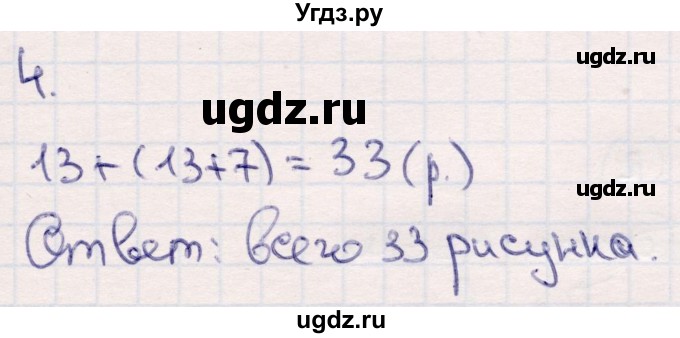 Угдз.ру
ugdz.ru
4.
ugdz.ru
13+(13+7)=33(р.)
ugdz.ru
Ответ: всего 33 рисунка.
ugdz.ru